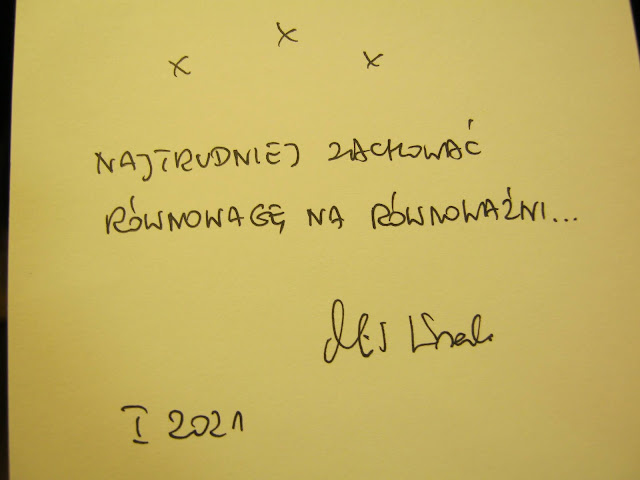 x x x
NAJTRUDNIEJ ZACHOWAĆ
RÓWNOWAGĘ NA RÓWNOWAŹNI...
I 2021